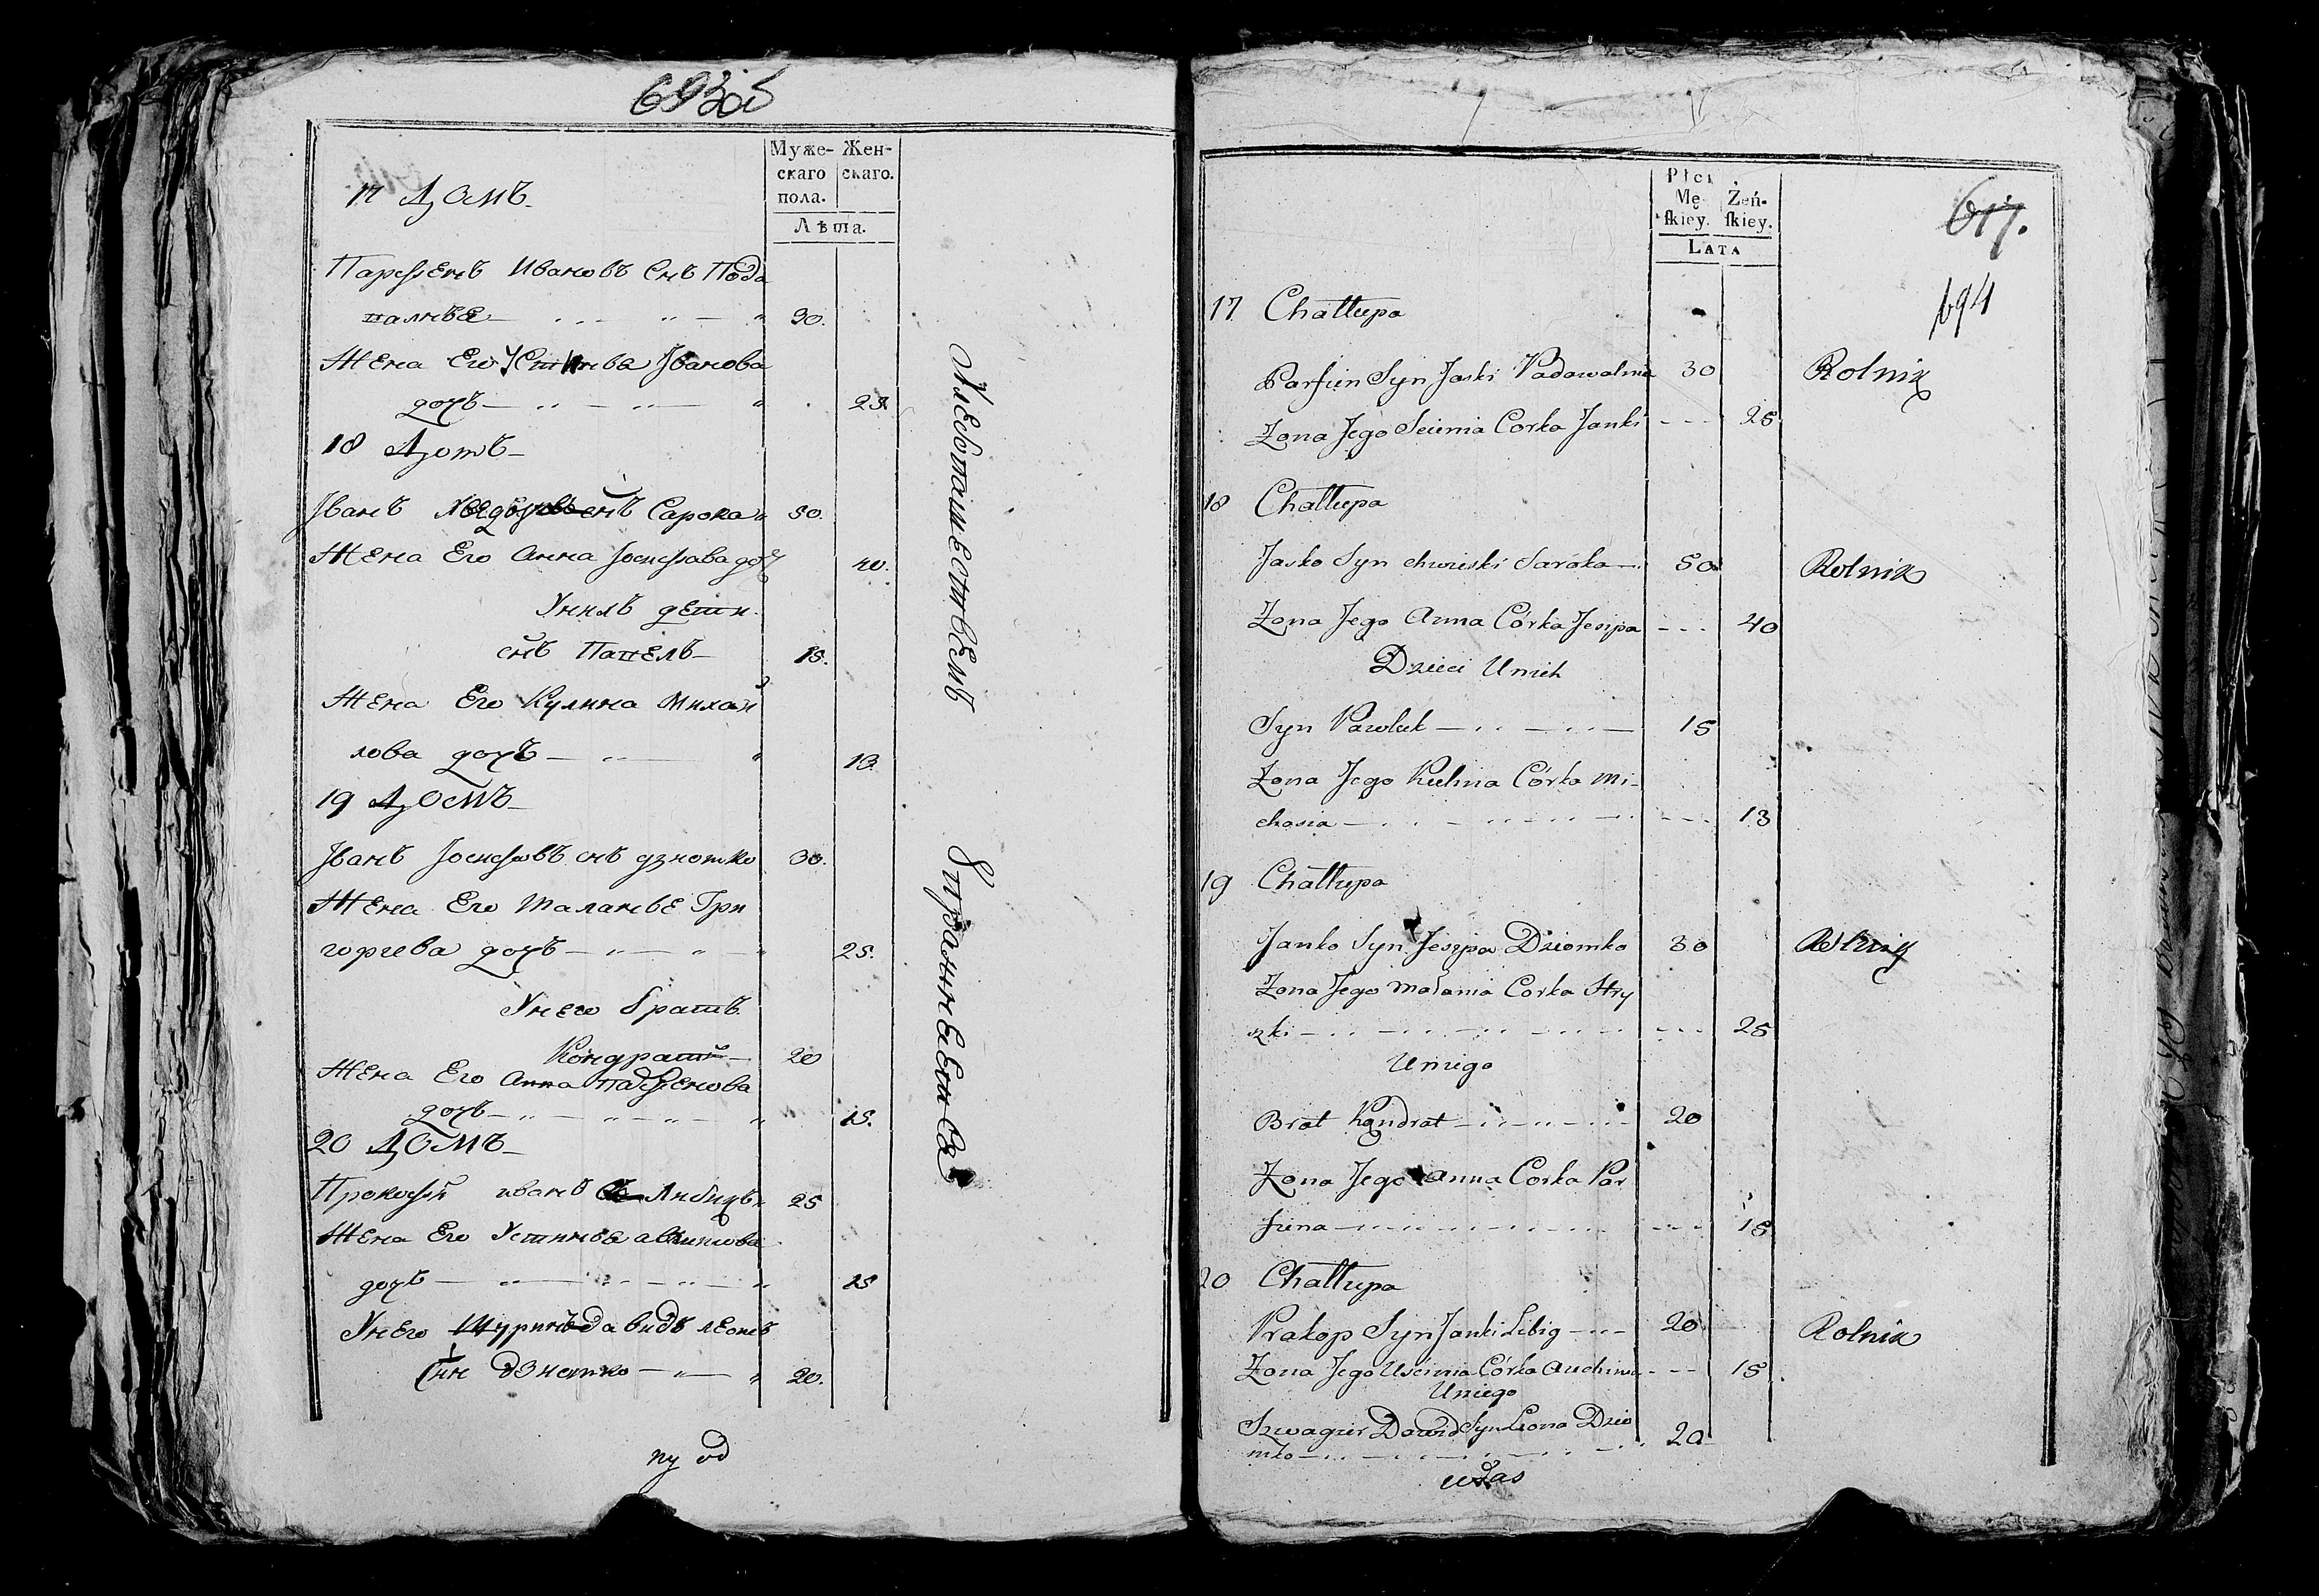 693об
Муже- Жен-
скаго скаго.
пола.
Лѣта.
17 Домъ
Парѳенъ Ивановъ снъ Пода
валнѣя 30.
Жена Его Устинья Іванова
дочъ 25.
18 Домъ
Іванъ снъ Сарока 50.
Жена Его Анна Іосифава доч 40.
Унихъ дети
снъ Павелъ 15.
Жена Его Кулина Михай
лова дочъ 13.
19 Домъ
Іванъ Іосифовъ снъ дзіомко 30.
Жена Его Маланья Гри
горьева дочъ 25.
Унего братъ
Кондратій 20
Жена Его Анна парѳенова
дочъ 15.
20 Домъ
Прокофій иванъ Либихъ 25
Жена Его Устинья
дочъ 15
Унего Шуринъ давидъ леонъ
снъ дзіомко 20.
Хлебопашествѣмъ
Упражняюца
617.
694
Płci
Mę- Żeń-
skiey. skiey.
LATA
17 Chałłupa
Parfien Syn Jaski Padawalnia 30 Rolnik
Żona Jego Sciınia Corka Janki 25
18 Chałłupa
Jasko Syn chwieski Saroka 50 Rolnik
Żona Jego Anna Córka Jesipa 40
Dzieci Unich
Syn Pawluk 15
Żona Jego Kulina Córka Mi-
chasia 13
19 Chałłupa
Janko Syn Jesipa Dziomko 30 Rolnik
Żona Jego Małania Corka Hry
szki 25
Uniego
Brat Kondrat 20
Żona Jego Anna Corka Par
fiena 15
20 Chałłupa
Prakop Syn Janki Libig 20 Rolnik
Żona Jego Uścinia Córka Auchima 15
Uniego
Szwagier Dawid Syn Leona Dzio
mko 20